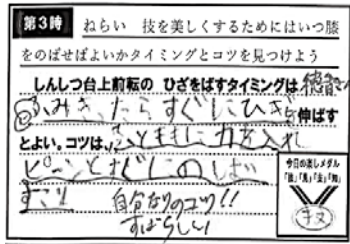 第3時 ねらい 技を美しくするためにはいつ膝
をのばせばよいかタイミングとコツを見つけよう
しんしつ台上前転の ひざをばすタイミングは
ふみきったらすぐにひざを伸ばす
とよい。コツは、ひざに力を入れ
ピーンとすぐにのしばす
こと!!
自分なりのコツ!!
すばらしい
今日の楽しメダル
「技」「具」「友」「知」